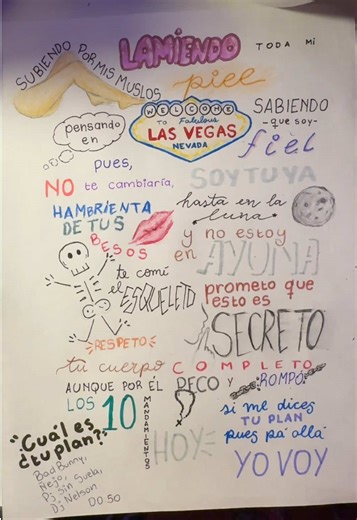 SUBIENDO POR MIS MUSLOS
LAMIENDO TODA MI
piel
pensando en
WELCOME
TO Fabulous
LAS VEGAS
NEVADA
SABIENDO
-que soy-
fiel
pues,
NO te cambiaría,
SOY TUYA
HAMBRIENTA
DE TUS
BESOS
hasta en la
luna
y no estoy
en AYUNA
te comí
el ESQUELETO
prometo que
esto es
SECRETO
RESPETO
tú cuerpo COMPLETO
AUNQUE POR EL PECO Y ROMPÓ
LOS 10 MANDAMIENTOS
HOY
si me dices
TU PLAN
pues pa' allá
YO VOY
"Cuál es
tu plan?"
Bad Bunny,
Ñejo,
PJ Sin Suela,
DJ Nelson
00:50